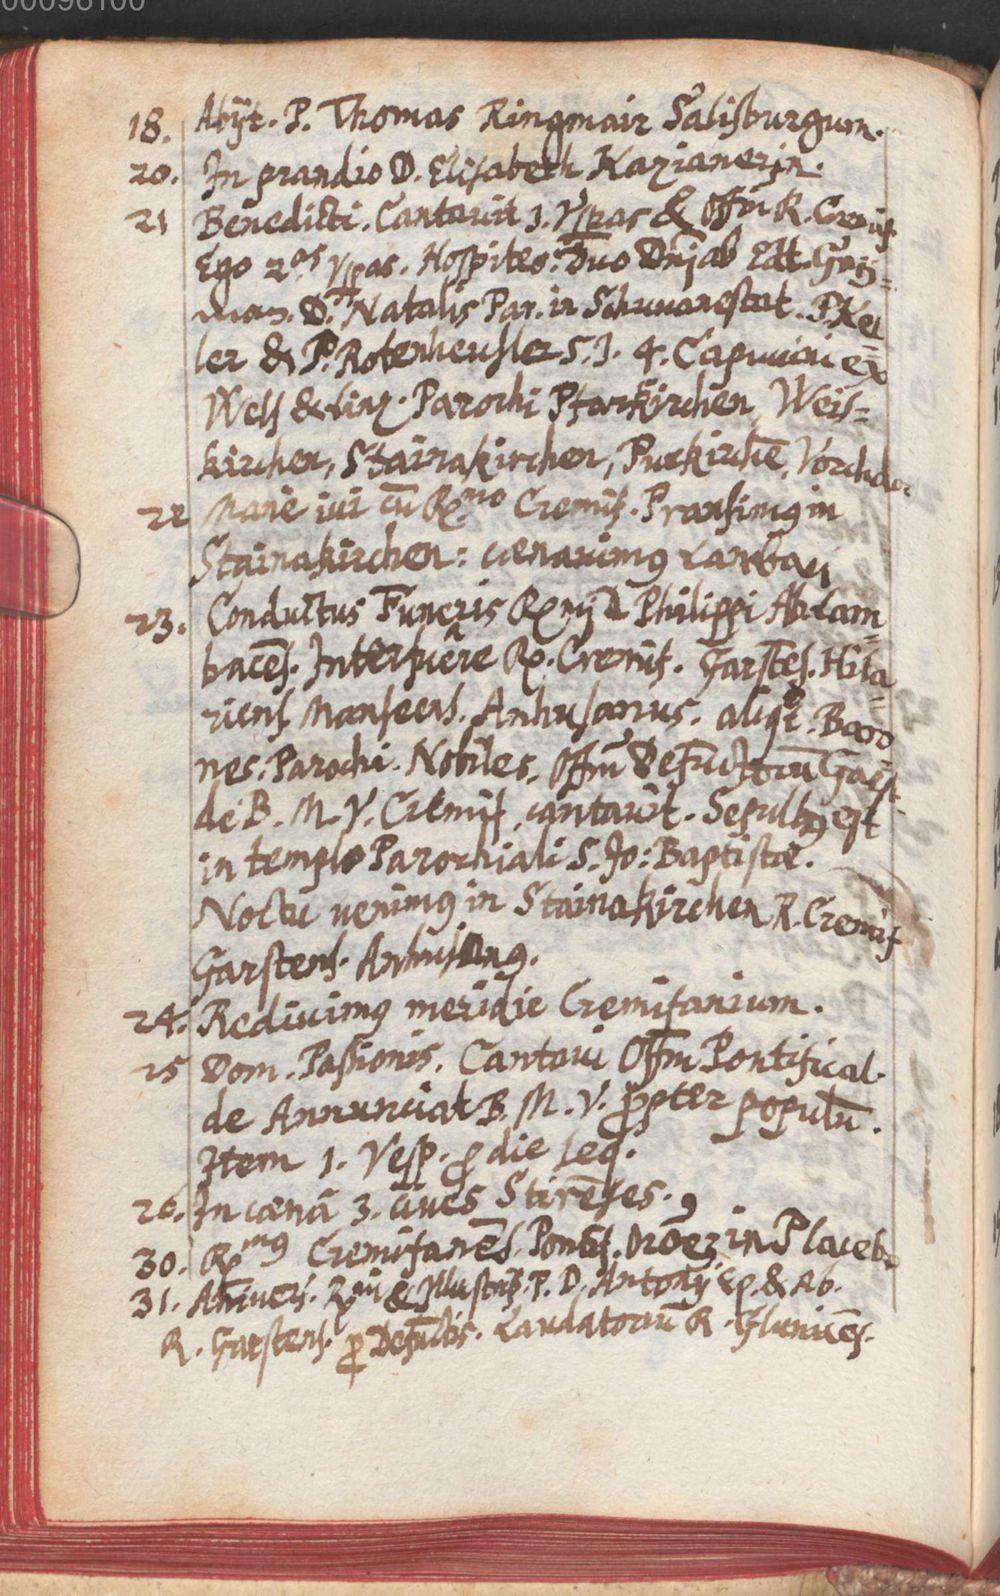 00096100
18. Abijt. P. Thomas Ringmair Salisburgum.
20. In prandio D. Elisabeth Kazianerin.
21 Benedicti. Cantavit 1. Vespas & Offm R. Cremif.
Ego 2as Vspas. Hospites: Duo Dnj ab Edt. Gey=
man. D. Natalis Par. in Schwanestat. P. Kei
ler & P. Rotenheusler S.J. 4. Capucini ex
Wels & Linz. Parochi Pfarkirchen, Weis=
kirchen, Stainakirchen, Purkirchē, Vorchdor
22 Mane ivi cū Rmo Cremif. Pransimg in
Stainakirchen: cenavimg Lambaci
23. Conductus Funeris Rmj D Philippi Ab. Lam=
bacēs. Interfuēre R. Cremif. Garstēs. Hila=
riens. Manseens. Anhusanus. aliqt. Baro=
nes. Parochi. Nobiles. Offm Defūctorū Garst.
de B. M. V. Cremif. cantavit. Sepultg est
in templo Parochiali S. Jo: Baptistæ.
Noctu venimg in Stainakirchen R. Cremif
Garstens. Anhusang.
24. Redivimg meridie Cremifanium.
25 Dom. Passionis. Cantavi Offm Pontifical.
de Annunciat B. M. V. ppter populū.
Item 1. Vesp. p die seq.
26. In cænā 3. cives Stirēses.
30. Rmg Cremifanēs. Pontif. in Placebo
31. Anivers. Rmi & Illustris. P. D. Antonij Ep. & Ab.
R. Garstens. p Defūctis. Laudatoriū R. Glunicēs.